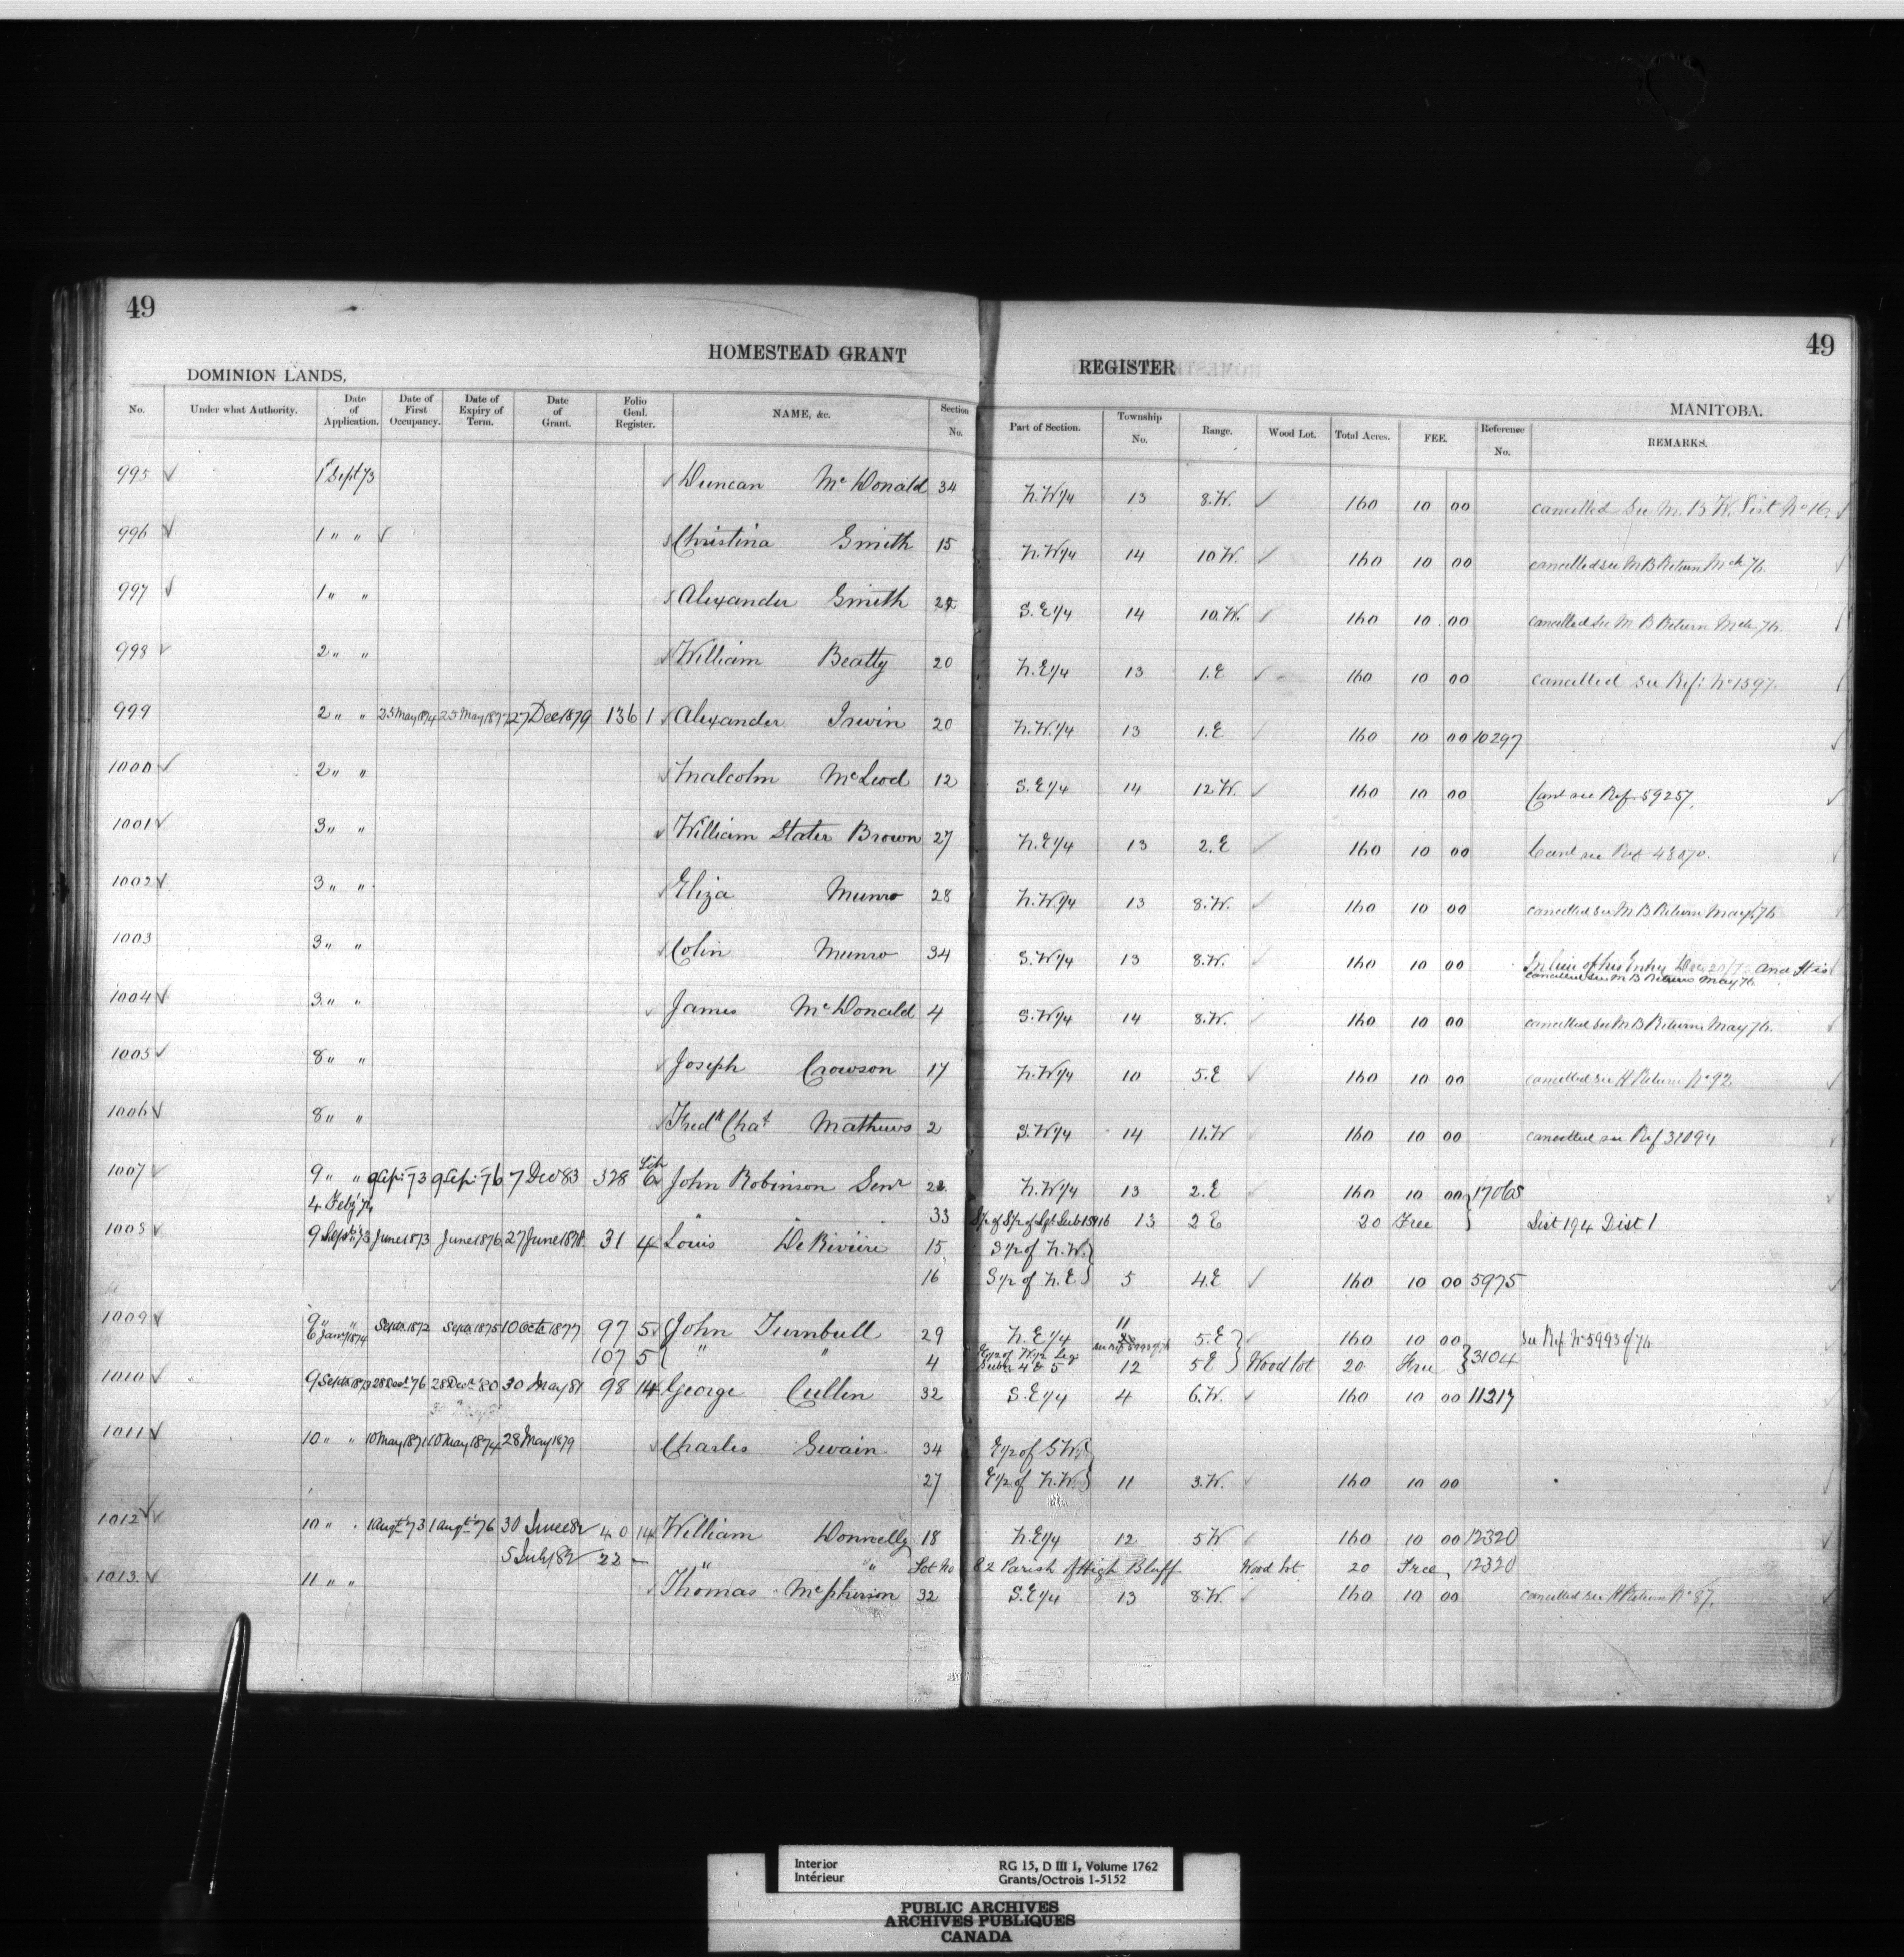 49
49
HOMESTEAD GRANT REGISTER
DOMINION LANDS. MANITOBA.
No. Under what Authority. Date of Application. Date of First Occupancy. Date of Expiry of Term. Date of Grant. Folio Genl. Register. NAME, &c. Section No. Part of Section. Township No. Range. Wood Lot. Total Acres. FEE. Reference No. REMARKS.
995 ✓ 1 Sept 73 Duncan McDonald 34 N.W 1/4 13 8.W. ✓ 160 10 00 cancelled See M.B W. List No 16 ✓
996 ✓ 1 " " ✓ Christina Smith 15 N.W 1/4 14 10 W. ✓ 160 10 00 cancelled see M B Return Mch 76.
997 ✓ 1 " " Alexander Smith S.E 1/4 14 10.W. ✓ 160 10 00 cancelled See M B Return Mch 76.
998 ✓ 2 " " William Beatty 20 N.E 1/4 13 1.E ✓ 160 10 00 cancelled see Ref: No 1597.
999 2 " " 25 May 1874 25 May 1877 27 Dec 1879 136 1 Alexander Irwin 20 N.W. 1/4 13 1.E 160 10 00 10297
1000 ✓ 2 " " Malcolm McLeod 12 S.E 1/4 14 12 W. ✓ 160 10 00 Canl see Ref. 59257.
1001 ✓ 3 " " William Slater Brown 27 N.E 1/4 13 2.E ✓ 160 10 00 Canl see Ref 43070.
1002 ✓ 3 " " Eliza Munro 28 N.W 1/4 13 8.W. ✓ 160 10 00 cancelled see M.B Return May 76
1003 3 " " Colin Munro 34 S.W 1/4 13 8.W. 160 10 00 In lieu of his Entry Dec and It is
cancelled see M B Return May 76
1004 ✓ 3 " " James McDonald 4 S.W 1/4 14 8.W. 160 10 00 cancelled see M B Return May 76.
1005 ✓ 8 " " Joseph Crowson 17 N.W 1/4 10 5.E ✓ 160 10 00 cancelled see H Return No 92
1006 ✓ 8 " " Fredk Chas Mathews 2 S.W 1/4 14 11.W 160 10 00 cancelled see Ref 31094
1007 ✓ 9 " " 9 Sep: 73 9 Sep: 76 7 Dec 83 328 Lib 6 John Robinson Senr N.W 1/4 13 2.E 160 10 00 } 17065
4 Feby 74 " " 33 13 2 E 20 Free } List 194 Dist 1
1008 ✓ 9 Sept 73 June 1873 June 1876 27 June 1878 31 4 Louis DeRiviere 15 S 1/2 of N.W. }
16 S 1/2 of N.E } 5 4.E ✓ 160 10 00 5975
1009 ✓ 9 " " Sept 1872 Sept 1875 10 Octr 1877 97 5 John Turnbull 29 N.E 1/4 11 5.E } 160 10 00 see Ref No 5993 of 76
6 Jany 1874 107 5 " " 4 E 1/2 of W 1/2 Leg Subn 4 & 5 12 5 E } Wood lot 20 Free } 3104
1010 ✓ " 9 Sept 1873 28 Decr 76 28 Decr 80 30 May 81 98 14 George Cullen 32 S.E 1/4 4 6.W. ✓ 160 10 00 11217
1011 ✓ 10 " " 10 May 1871 10 May 1874 28 May 1879 Charles Swain 34 E 1/2 of S.W }
27 E 1/2 of N.W. } 11 3.W. 160 10 00
1012 ✓ 10 " " 1 Augt 73 1 Augt 76 30 June 82 40 14 William Donnelly 18 N.E 1/4 12 5 W 160 10 00 12320
5 July 82 22 — " " Lot No 82 Parish of High Bluff Wood lot 20 Free 12320
1013 ✓ 11 " " Thomas McPherson 32 S.E 1/4 13 8.W. 160 10 00 cancelled see H Return No 87.
Interior
Intérieur
RG 15, D III 1, Volume 1762
Grants/Octrois 1-5152
PUBLIC ARCHIVES
ARCHIVES PUBLIQUES
CANADA